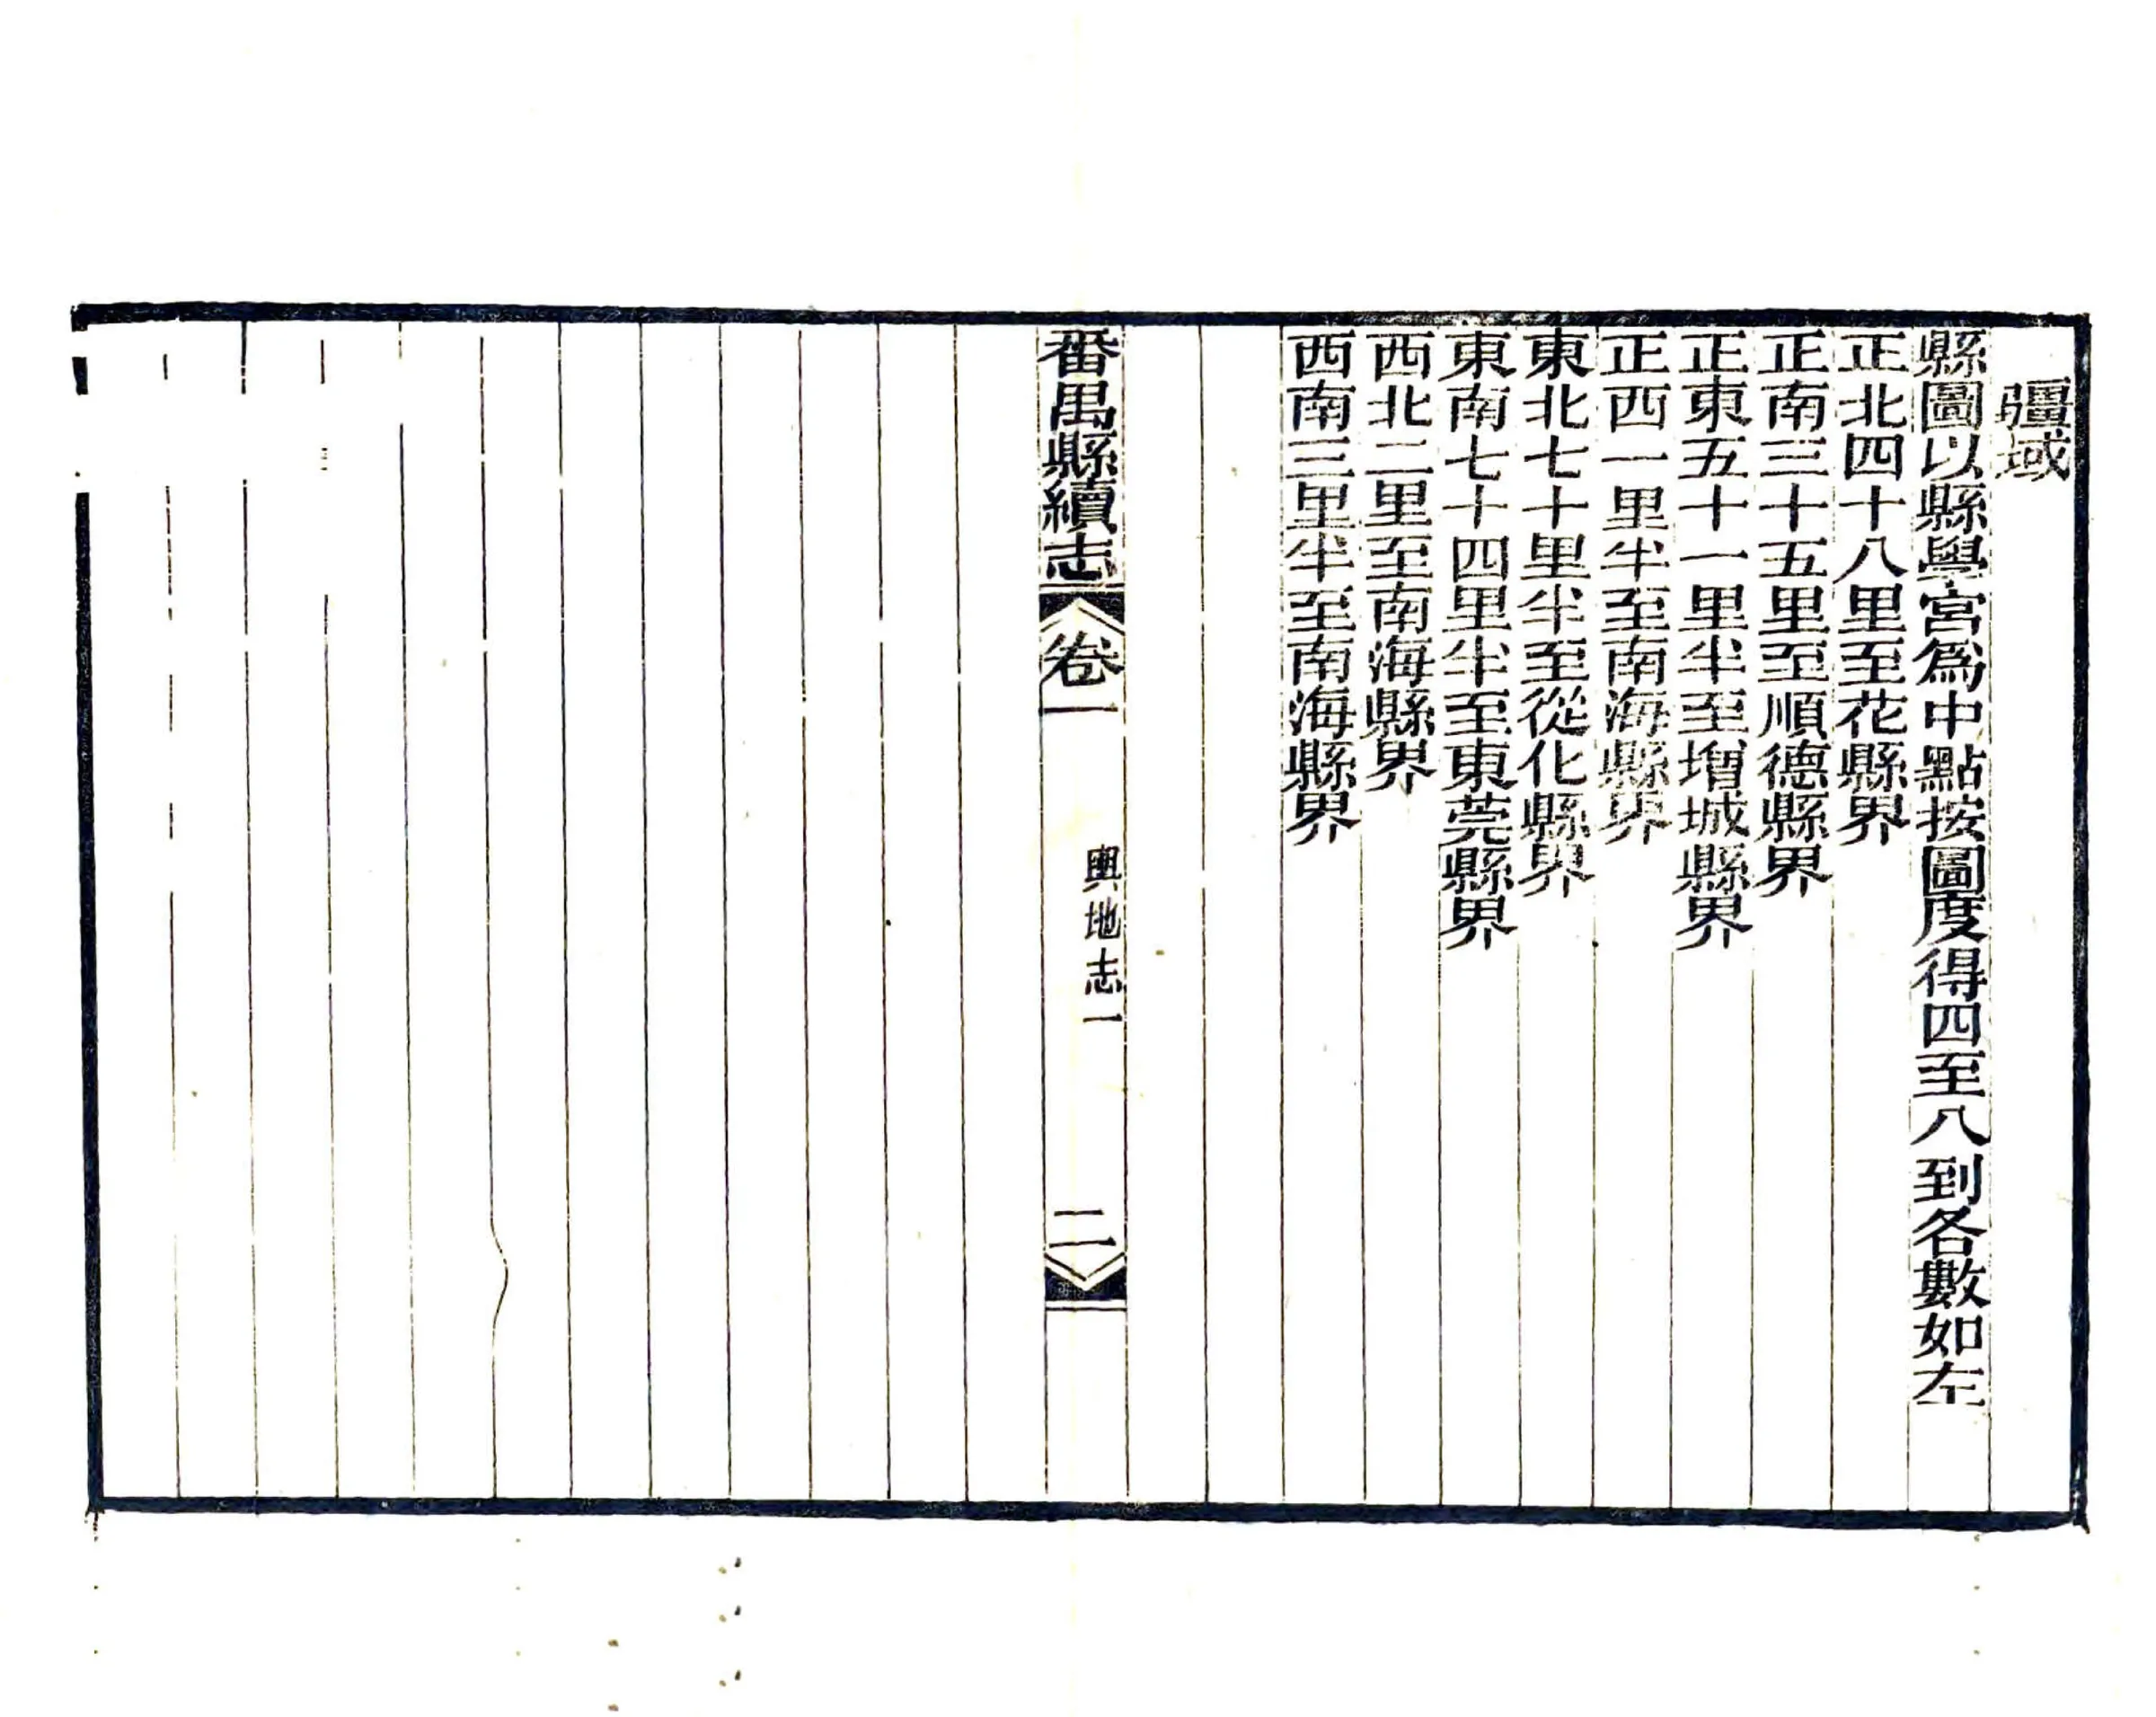 疆域
縣圖以縣學宮爲中點按圖度得四至八到各數如左
正北四十八里至花縣界
正南三十五里至順德縣界
正東五十一里半至增城縣界
正西一里半至南海縣界
東北七十里半至從化縣界
東南七十四里半至東莞縣界
西北二里至南海縣界
西南三里半至南海縣界
番禺縣續志
卷一
輿地志一
二